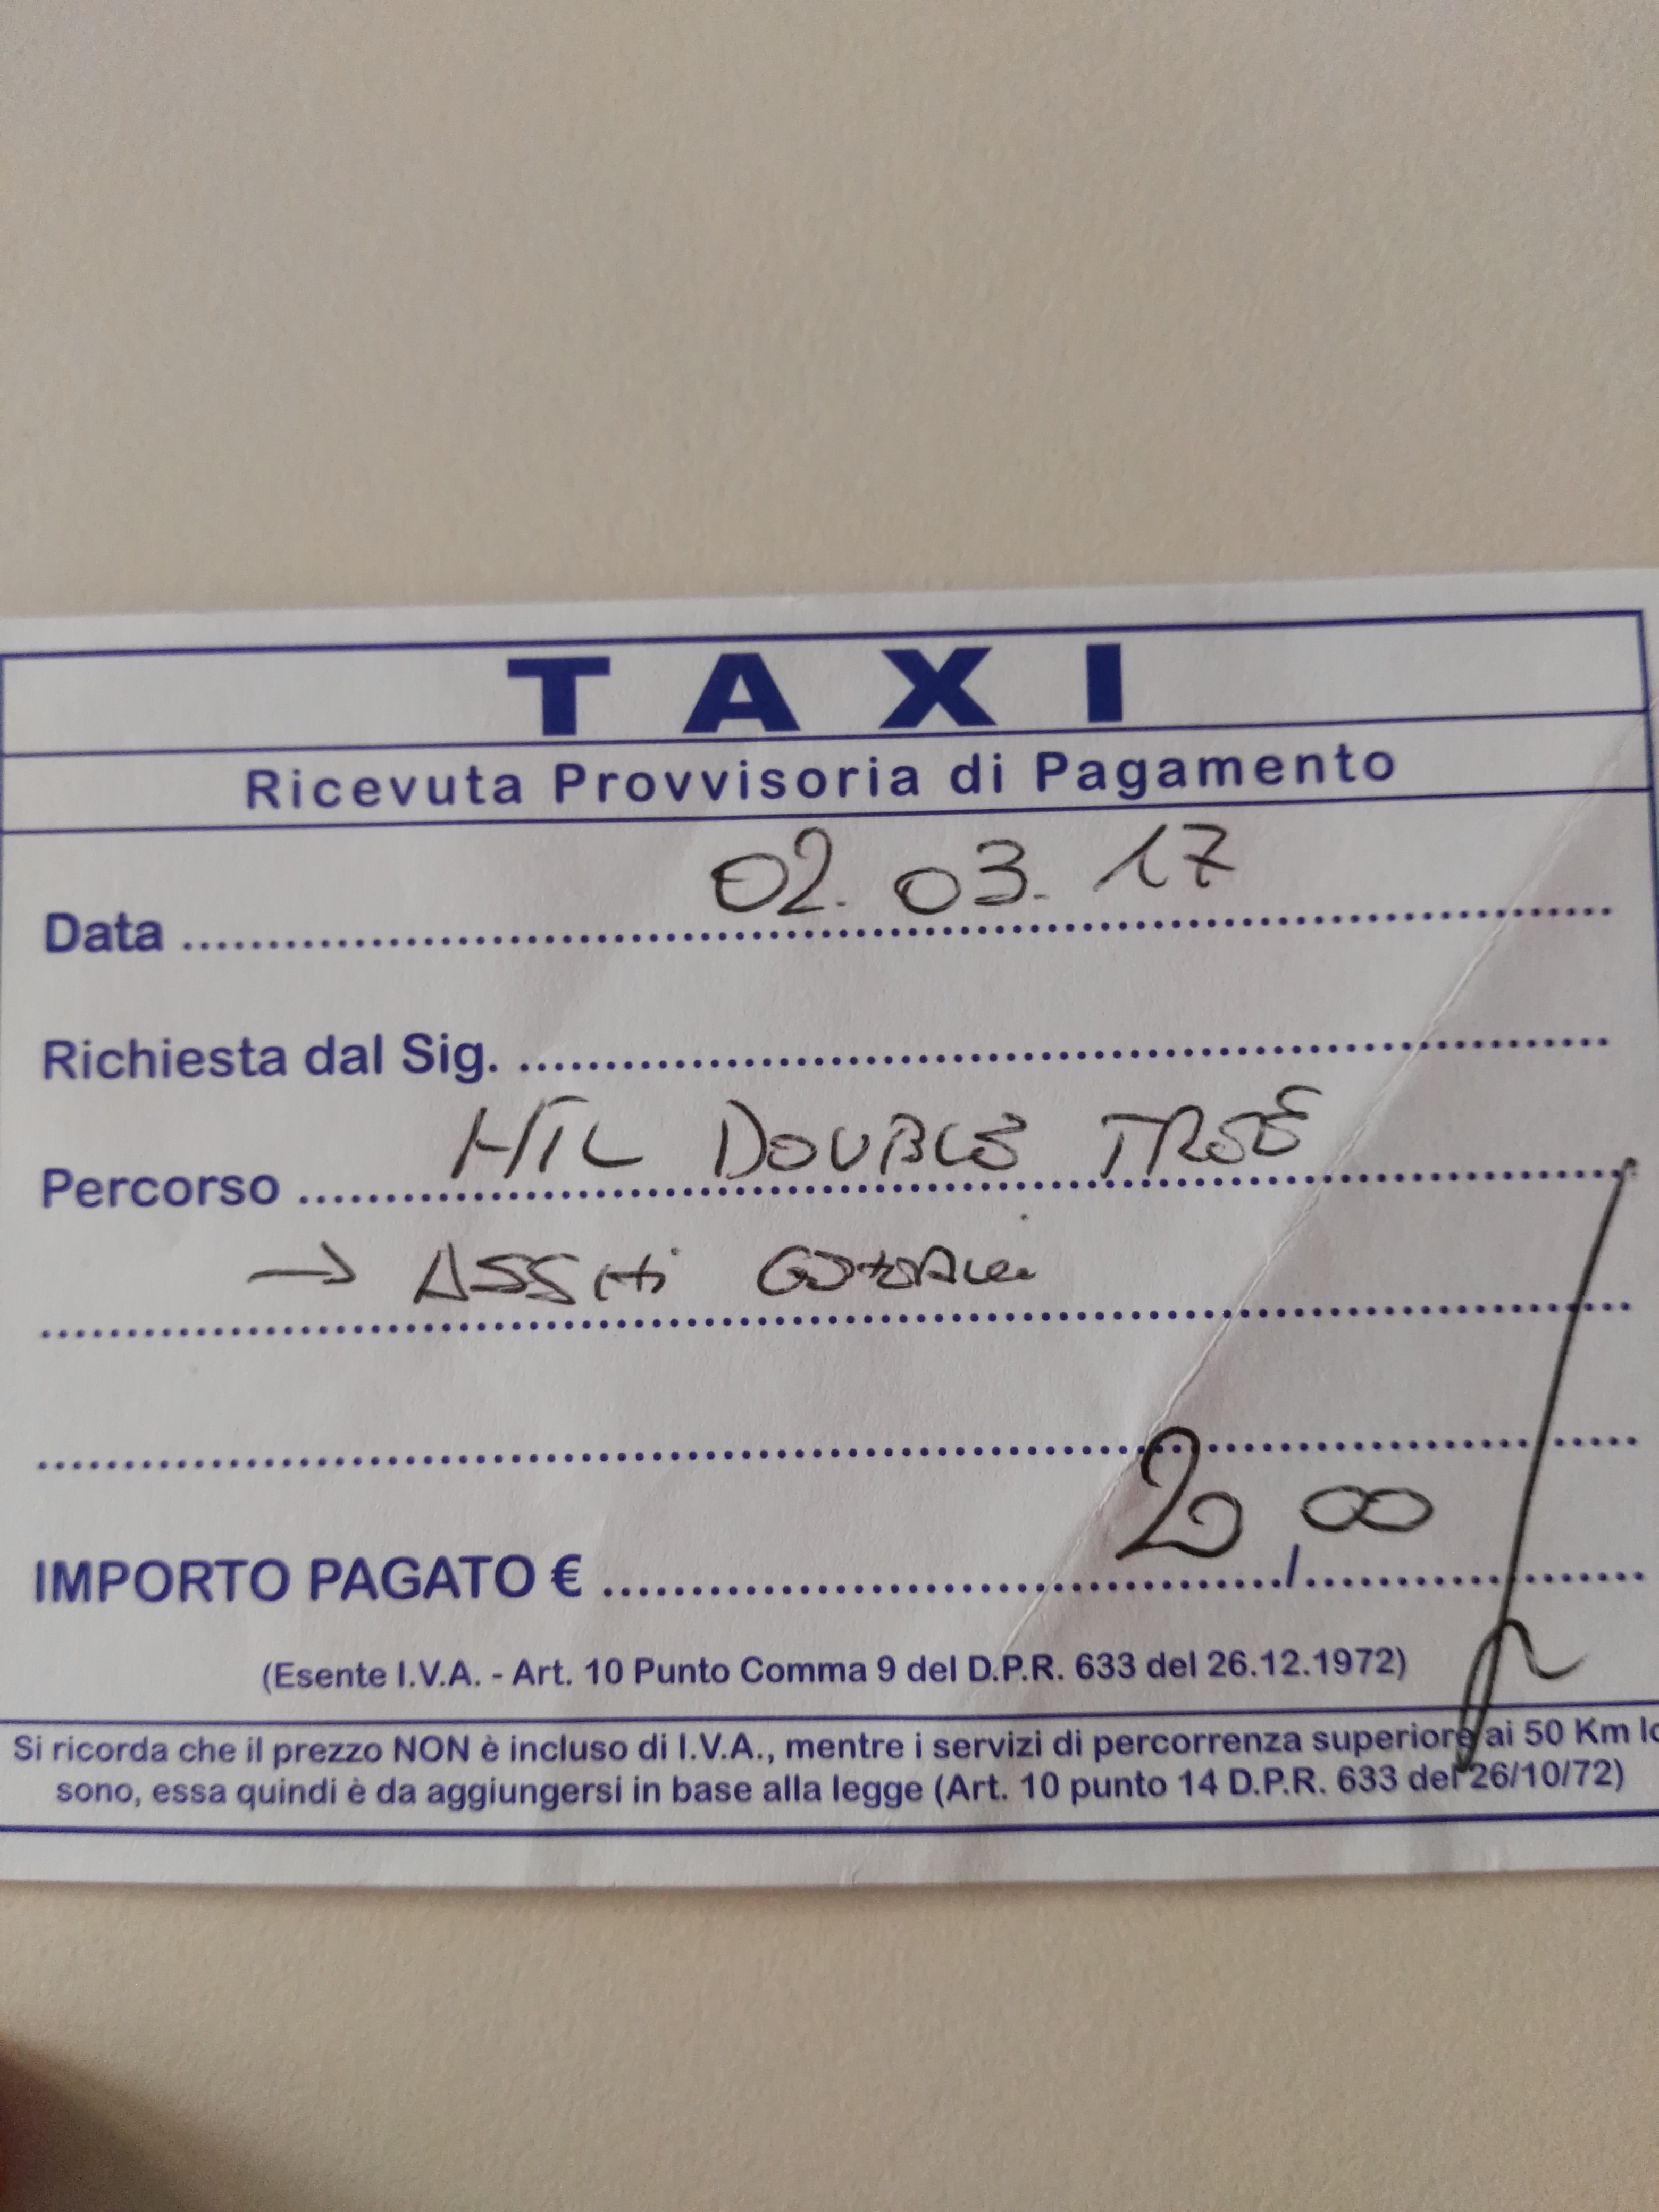 TAXI
Ricevuta Provvisoria di Pagamento
Data 02.03.17
Richiesta dal Sig.
Percorso HTL DOUBLE TREE
→
IMPORTO PAGATO € 20,00
(Esente I.V.A. - Art. 10 Punto Comma 9 del D.P.R. 633 del 26.12.1972)
Si ricorda che il prezzo NON è incluso di I.V.A., mentre i servizi di percorrenza superiore ai 50 Km lo
sono, essa quindi è da aggiungersi in base alla legge (Art. 10 punto 14 D.P.R. 633 del 26/10/72)